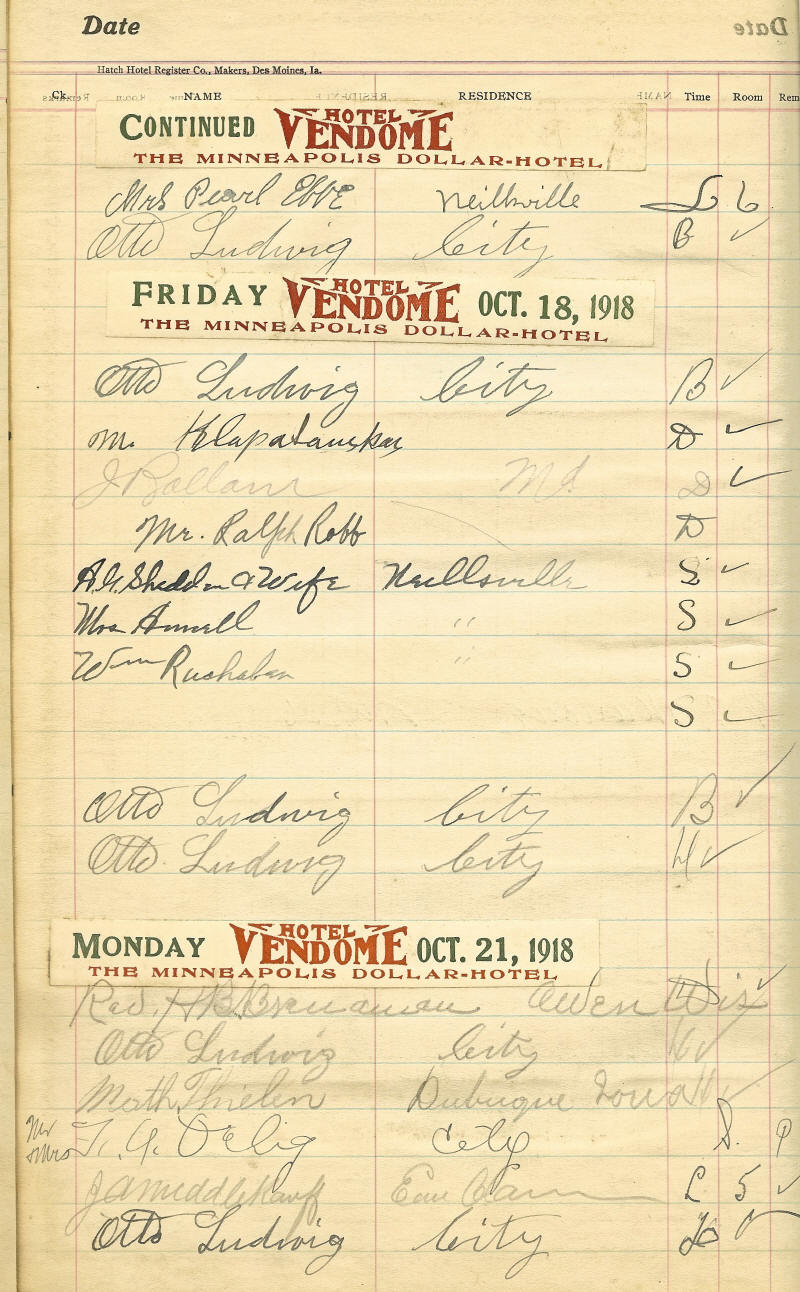 Date
Hatch Hotel Register Co., Makers, Des Moines, Ia.
Ck. NAME RESIDENCE Time Room Rem
CONTINUED HOTEL VENDOME
THE MINNEAPOLIS DOLLAR-HOTEL
Mrs Pearl Ebbe Neillsville L 6
Otto Ludwig City B ✓
FRIDAY HOTEL VENDOME OCT. 18, 1918
THE MINNEAPOLIS DOLLAR-HOTEL
Otto Ludwig City B ✓
M. D ✓
J Ballam Md. D ✓
Mr. Ralph Robb D
& Wife Neillsville S ✓
Mrs " S ✓
Wm " S ✓
S ✓
Otto Ludwig City B ✓
Otto Ludwig City H ✓
MONDAY HOTEL VENDOME OCT. 21, 1918
THE MINNEAPOLIS DOLLAR-HOTEL
Rev. H B Brenaman Owen Wis ✓
Otto Ludwig City ✓
Math Thielen Dubuque Iowa ✓
Mr
Mrs City S.
J A Middlekauff Eau Claire L 5 ✓
Otto Ludwig City ✓